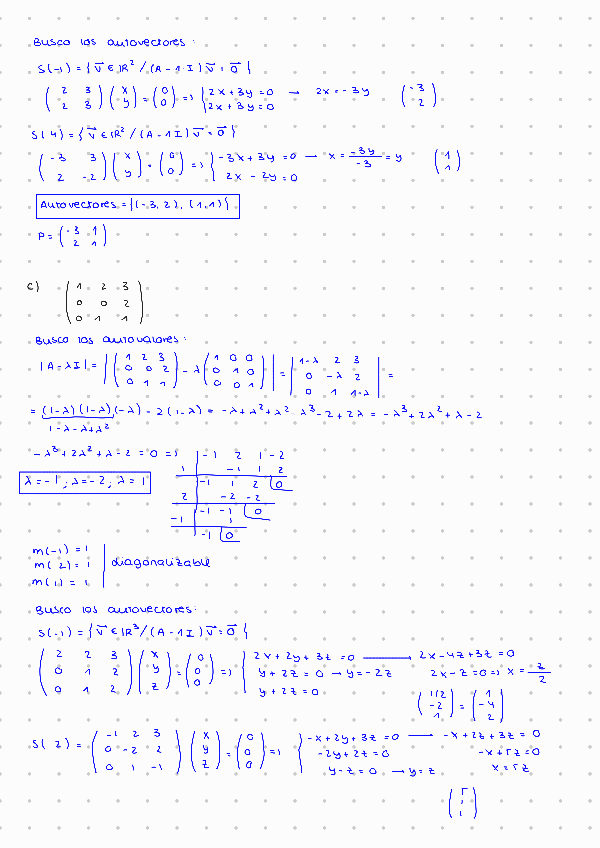 Busco los autovectores:
S(-1) = { v⃗ ∈ IR² / (A - 1·I) v⃗ = 0⃗ }
( 2 3 ; 2 3 ) ( x ; y ) = ( 0 ; 0 ) => { 2x + 3y = 0 ; 2x + 3y = 0 → 2x = -3y ( -3 ; 2 )
S(4) = { v⃗ ∈ IR² / (A - 1 I) v⃗ = 0⃗ }
( -3 3 ; 2 -2 ) ( x ; y ) = ( 0 ; 0 ) => { -3x + 3y = 0 → x = -3y / -3 = y ; 2x - 2y = 0 ( 1 ; 1 )
Autovectores = { (-3, 2), (1, 1) }
P = ( -3 1 ; 2 1 )
c) ( 1 2 3 ; 0 0 2 ; 0 1 1 )
Busco los autovalores:
|A = λ I| = | ( 1 2 3 ; 0 0 2 ; 0 1 1 ) - λ ( 1 0 0 ; 0 1 0 ; 0 0 1 ) | = | 1-λ 2 3 ; 0 -λ 2 ; 0 1 1-λ | =
= (1-λ)(1-λ)(-λ) - 2(1-λ) = -λ + λ² + λ² - λ³ - 2 + 2λ = -λ³ + 2λ² + λ - 2
1 - λ - λ + λ²
-λ³ + 2λ² + λ - 2 = 0 =>
-1 2 1 -2
1 -1 1 2
-1 1 2 0
2 -2 -2
-1 -1 0
-1 1
-1 0
λ = -1 ; λ = -2 ; λ = 1
m(-1) = 1
m(2) = 1
m(1) = 1
diagonalizable
Busco los autovectores:
S(-1) = { v⃗ ∈ IR³ / (A - 1 I) v⃗ = 0⃗ }
( 2 2 3 ; 0 1 2 ; 0 1 2 ) ( x ; y ; z ) = ( 0 ; 0 ; 0 ) => { 2x + 2y + 3z = 0 → 2x - 4z + 3z = 0
y + 2z = 0 → y = -2z 2x - z = 0 => x = z / 2
y + 2z = 0
( 1/2 ; -2 ; 1 ) = ( 1 ; -4 ; 2 )
S(2) = ( -1 2 3 ; 0 -2 2 ; 0 1 -1 ) ( x ; y ; z ) = ( 0 ; 0 ; 0 ) => { -x + 2y + 3z = 0 → -x + 2z + 3z = 0
-2y + 2z = 0 -x + 5z = 0
y - z = 0 → y = z x = 5z
( 5 ; 1 ; 1 )